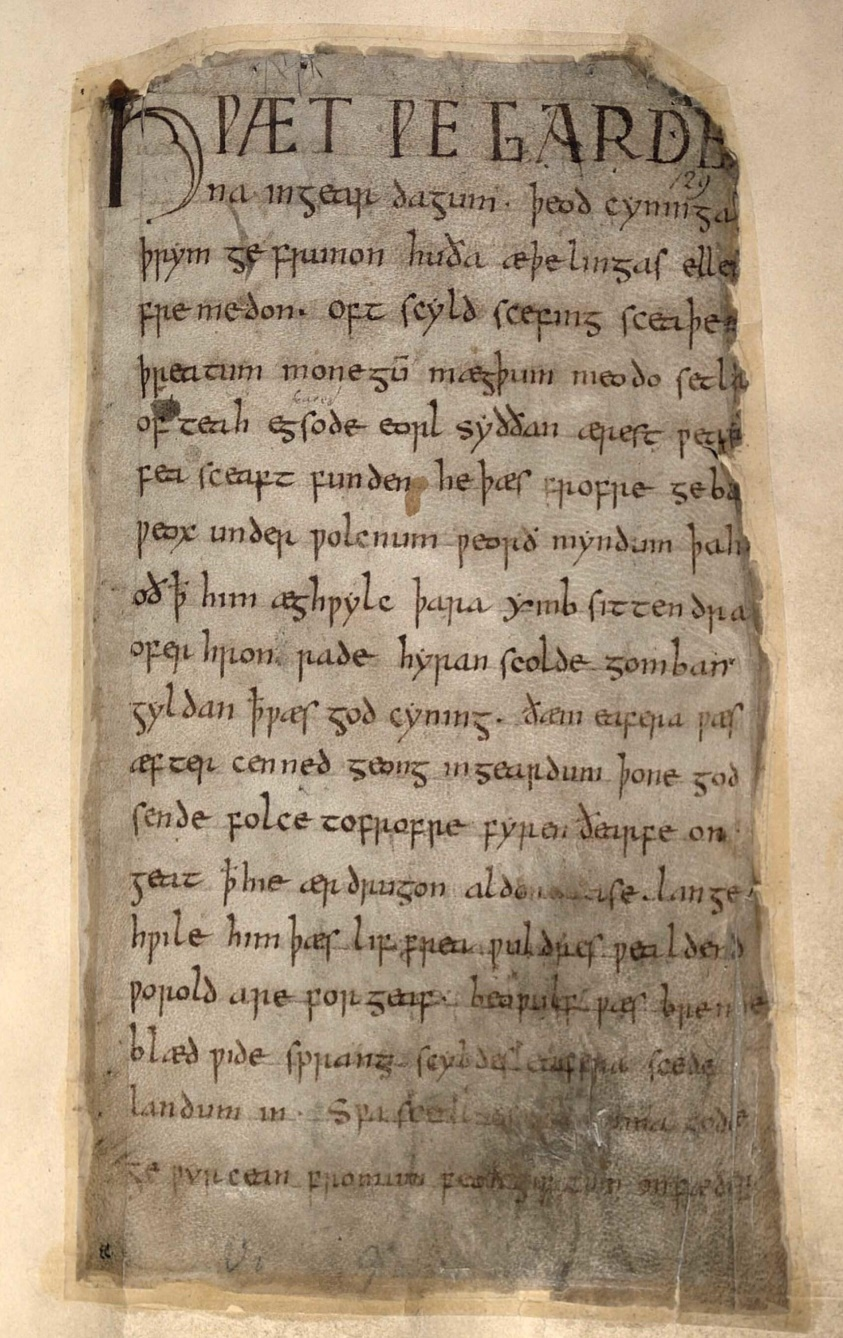 HǷÆT ǷE GARDE
na ingear dagum. þeod cyninga
þrym ge frunon huða æþelingas elle
fre medon. oft scyld scefing sceaþe
þreatum monegū mægþum meodo setla
of teah egsode eorl syððan ærest ƿear
fea sceaft funden he þæs frofre geba
ƿeox under ƿolcnum ƿeorð myndum þah
oð ꝥ him æghƿylc þara ymb sittendra
ofer hron rade hyran scolde gomban
gyldan ꝥ ƿæs god cyning. ðæm eafera ƿæs
æfter cenned geong in geardum þone god
sende folce tofrofre fyren ðearfe on
geat ꝥ hie ær drugon aldo ase. lange
hƿile him þæs lif frea ƿuldres ƿealdend
ƿorold are for geaf. beoƿulf ƿæs breme
blæd ƿide sprang scyldes eafera scede
landum in. Sƿa sceal gode
ge ƿyrcean fromum feoh giftum